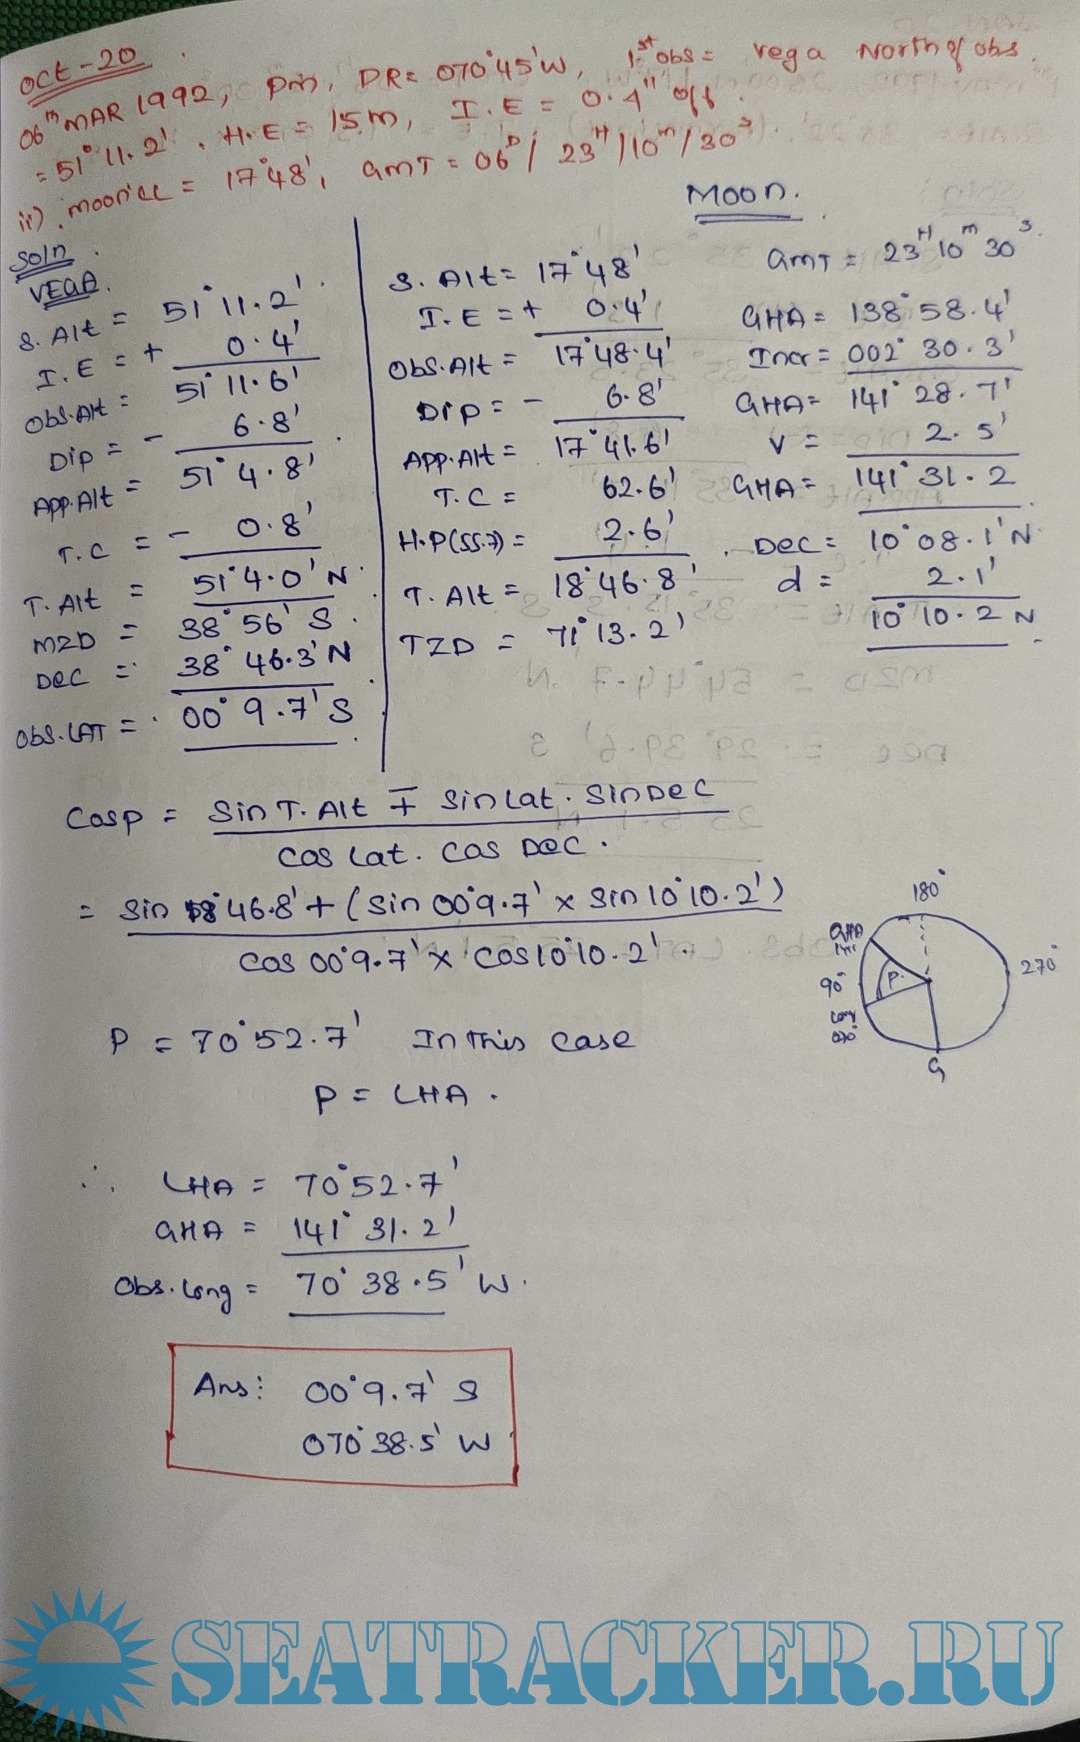 Oct-20
06th MAR 1992, pm, DR= 070°45'W, 1st obs = vega North of obs.
= 51° 11.2'. H.E = 15m, I.E = 0.4" off.
ii). moon'LL = 17°48', GMT = 06D/ 23H/10m/30s
Soln.
VEGA.
S. Alt = 51° 11.2'
I. E = + 0.4'
Obs.Alt = 51° 11.6'
Dip = - 6.8'
App.Alt = 51° 4.8'
T.C = - 0.8'
T. Alt = 51° 4.0' N
MZD = 38° 56' S.
Dec = 38° 46.3' N
Obs.LAT = 00° 9.7' S
Moon.
S. Alt = 17°48'
I.E = + 0.4'
Obs.Alt = 17°48.4'
Dip = - 6.8'
App.Alt = 17°41.6'
T.C = 62.6'
H.P(55.7) = 2.6'
T. Alt = 18°46.8'
TZD = 71° 13.2'
GMT = 23H 10m 30s
GHA = 138° 58.4'
Incr = 002° 30.3'
GHA = 141° 28.7'
V = 2.5'
GHA = 141° 31.2
Dec = 10° 08.1' N
d = 2.1'
10° 10.2 N
Cosp = Sin T. Alt ∓ Sin Lat. Sin Dec
Cos Lat. Cos Dec.
= Sin 18°46.8' + (Sin 00°9.7' × Sin 10°10.2')
Cos 00°9.7' × Cos 10°10.2'.
180°
GHA
90°
P.
270°
Long
070°
G
P = 70°52.7' In this case
P = LHA.
∴ LHA = 70°52.7'
GHA = 141° 31.2'
Obs. Long = 70° 38.5' W.
Ans: 00°9.7' S
070°38.5' W
SEATRACKER.RU